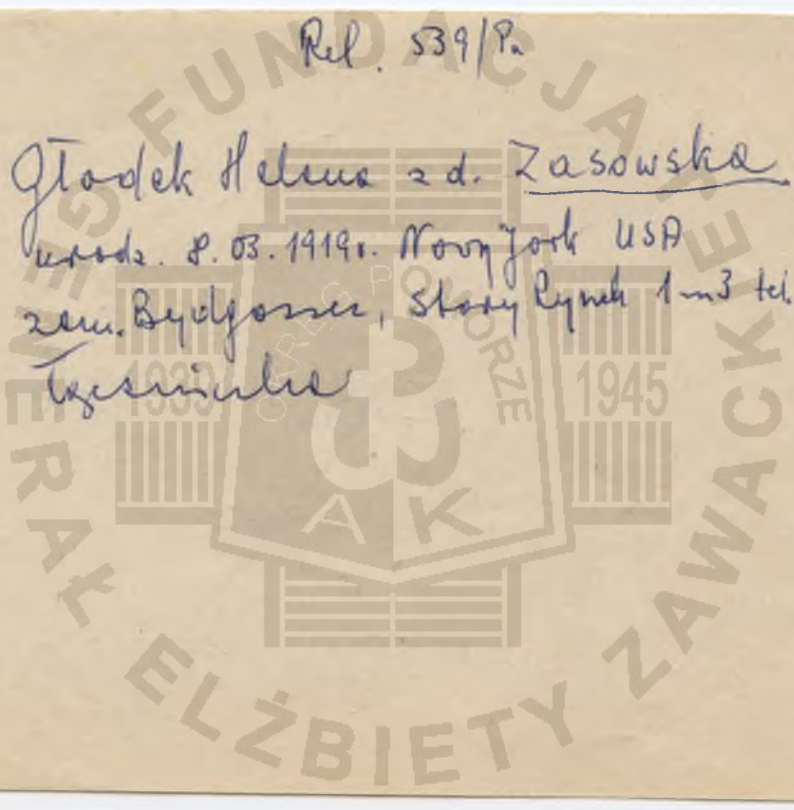 Rel. 539/Pa
Głodek Helena z d. Zasowska
urodz. 8.03.1919r. Nowy Jork USA
zam. Bydgoszcz, Stary Rynek 1 m 3 tel.
FUNDACJA
GENERAŁ ELŻBIETY ZAWACKIEJ
OKRĘG POMORZE
1939 1945
AK